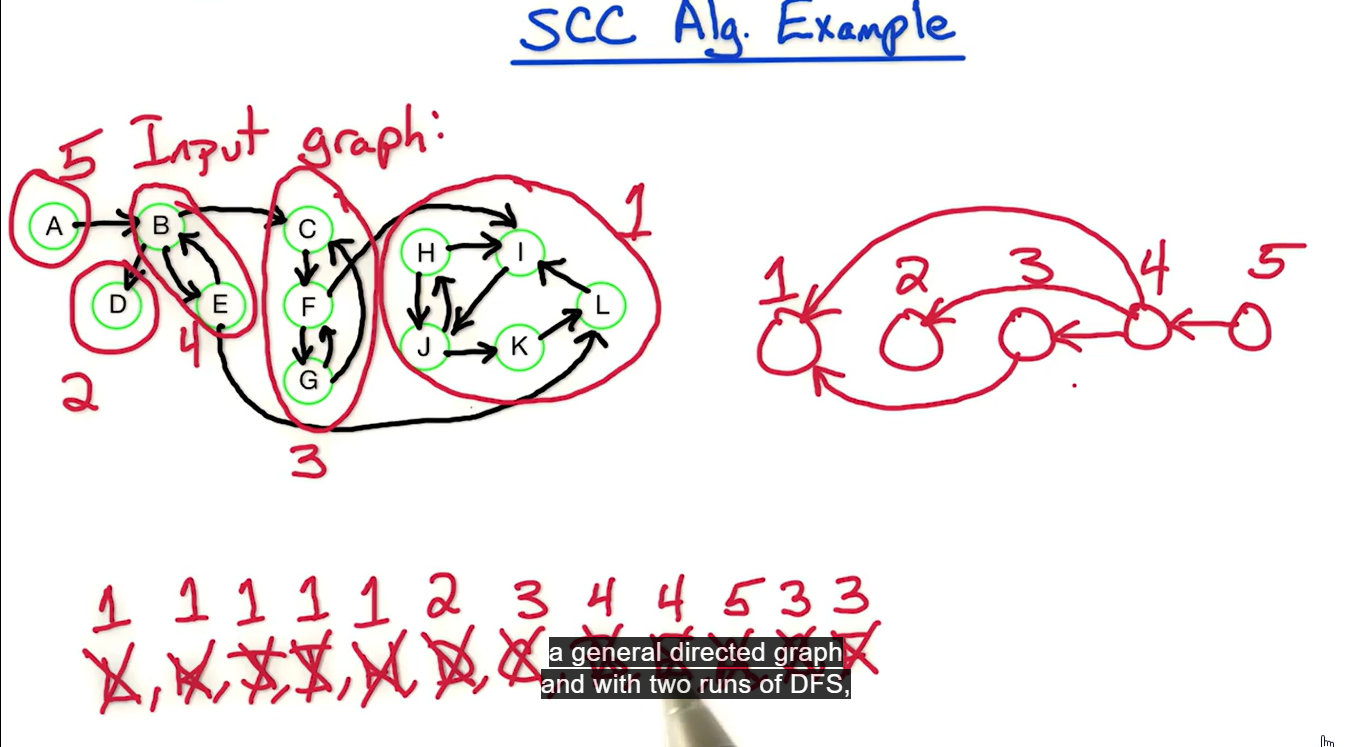 SCC Alg. Example
5 Input graph:
1
A B C H I
D E F L
4 J K
G
2
3
1 2 3 4 5
1 1 1 1 1 2 3 4 4 5 3 3
a general directed graph
and with two runs of DFS,